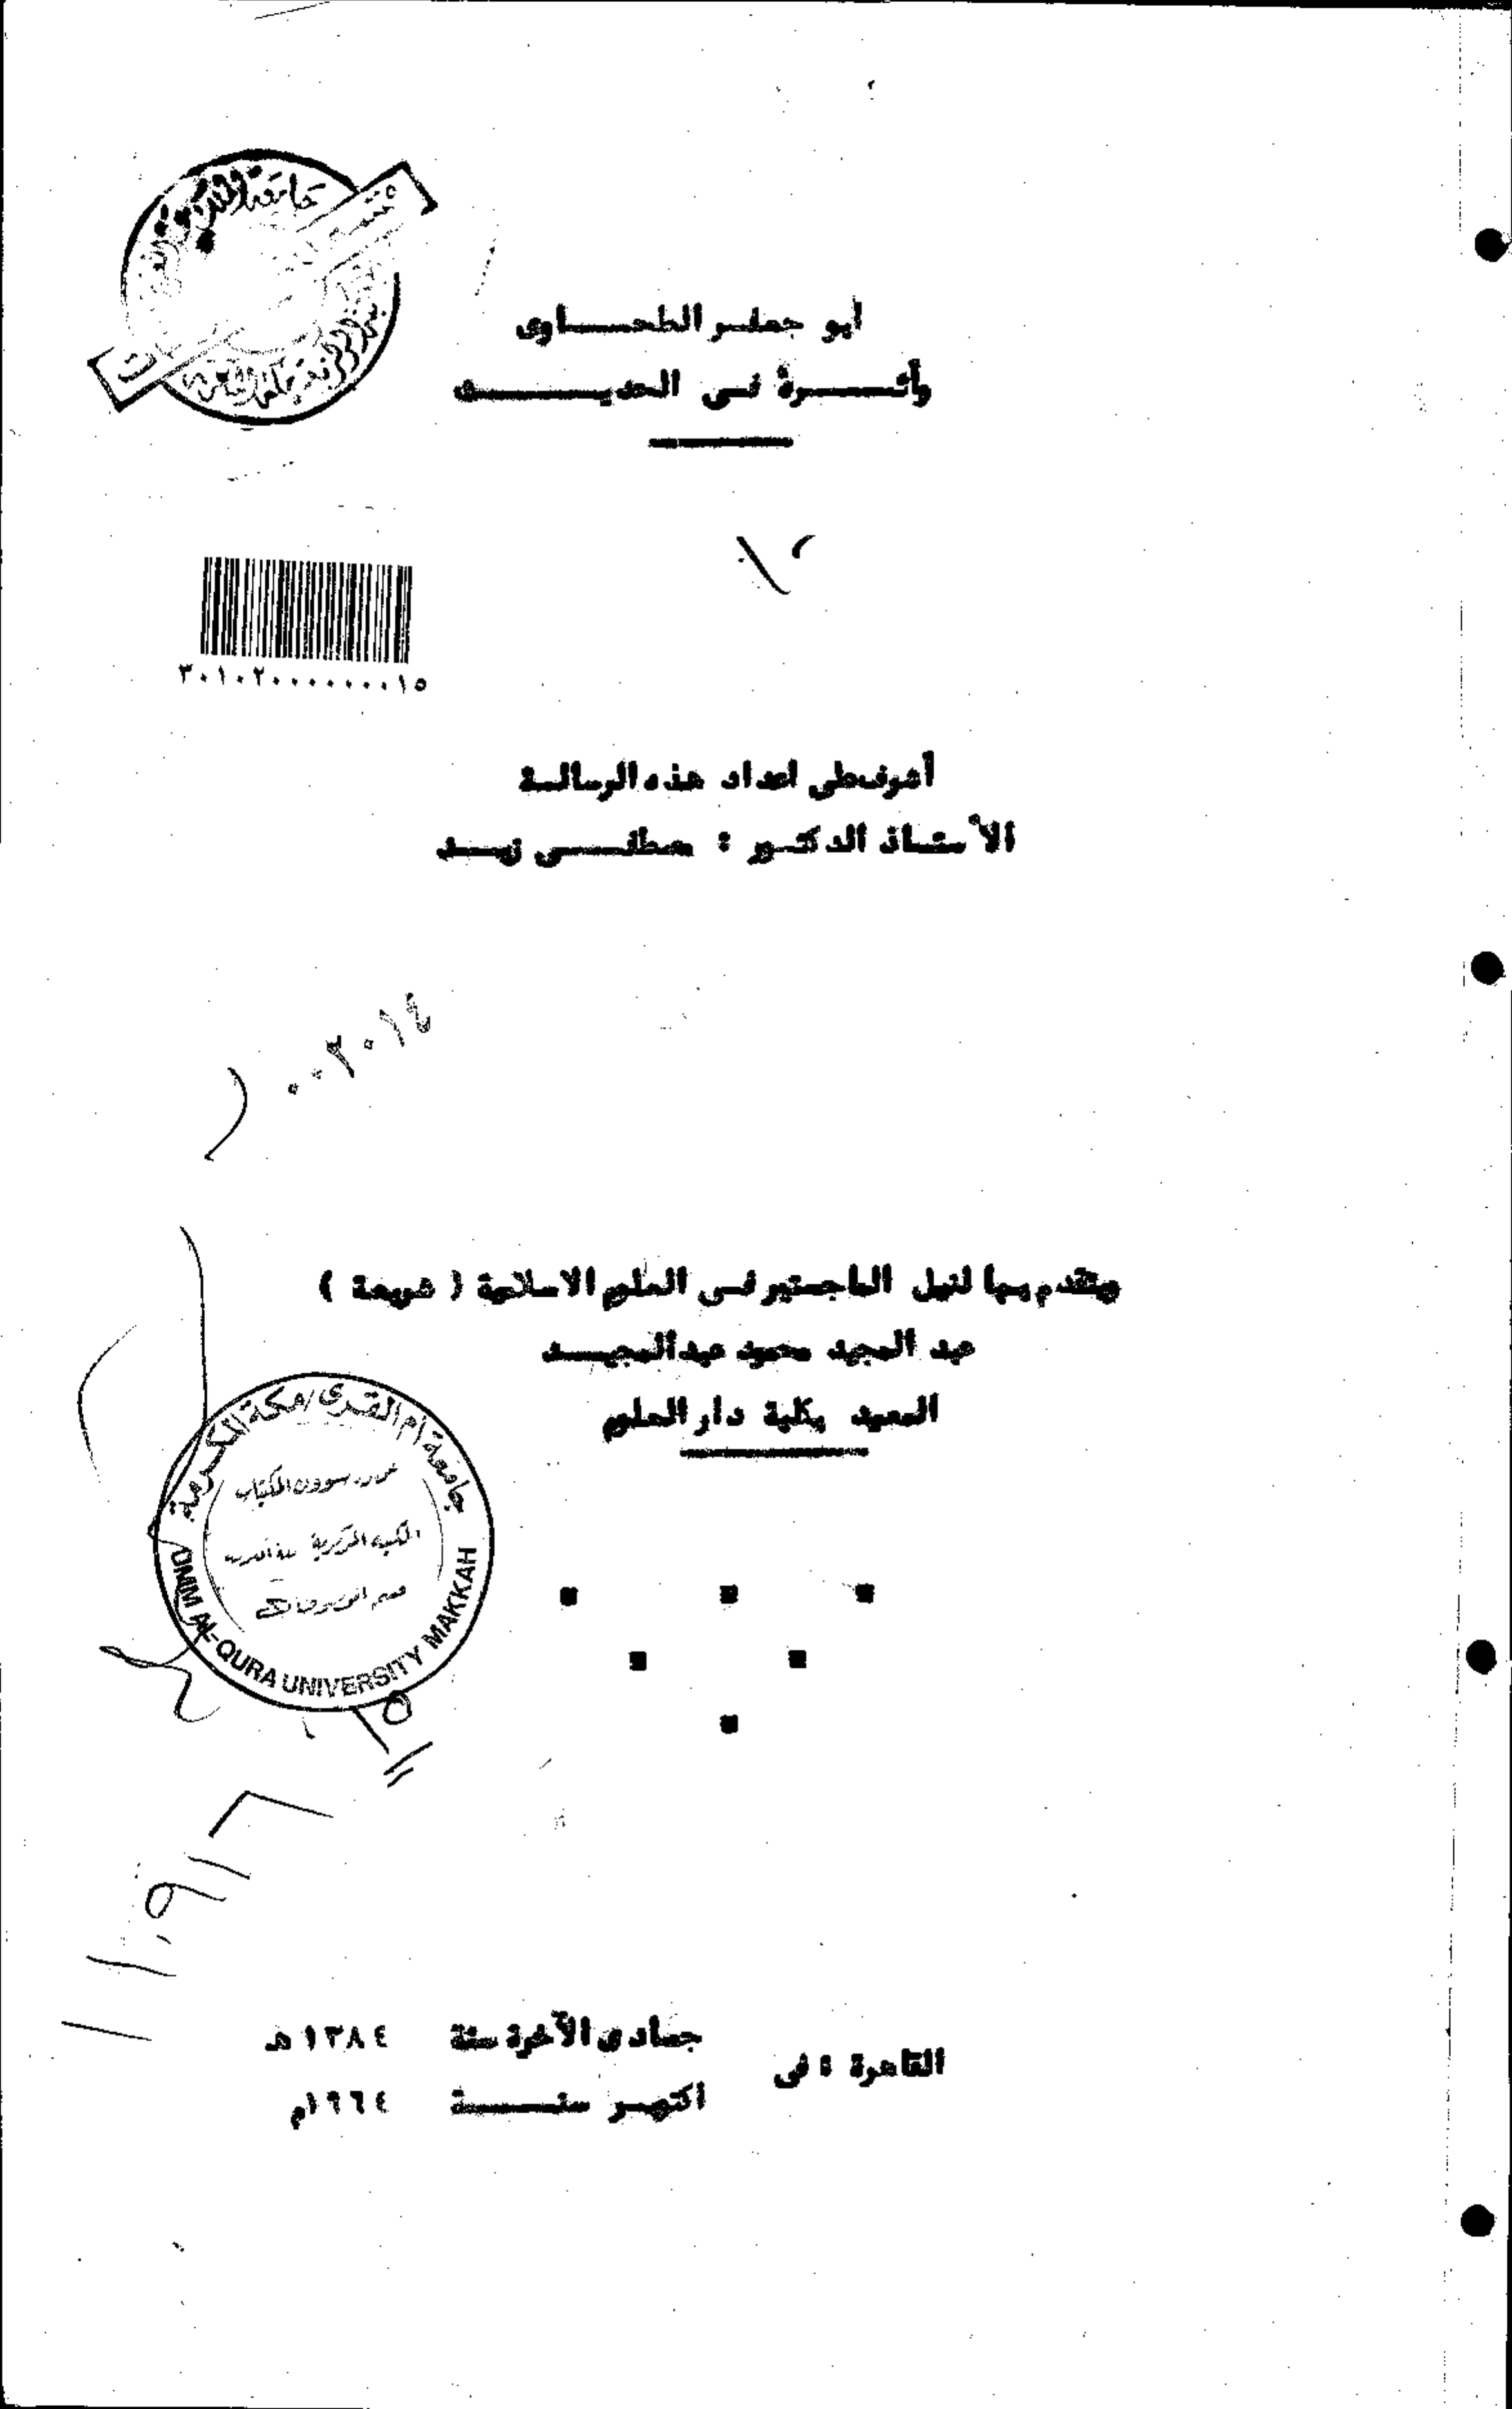 أبو جعفر الطحاوى
وأثره فى الحديث
٣٠١٠٢٠٠٠٠٠٠٠١٥
أشرف على اعداد هذه الرسالة
الأستاذ الدكتور : مصطفى زيد
٠٠٢٠١٤
ويتقدم بها لنيل الماجستير فى العلوم الاسلامية ( شريعة )
عبد المجيد محمود عبدالمجيد
المعيد بكلية دار العلوم
جامعة أم القرى / مكة المكرمة
UMM AL-QURA UNIVERSITY MAKKAH
القاهرة : فى
جمادى الآخرة سنة ١٣٨٤ هـ
اكتوبر سنة ١٩٦٤م